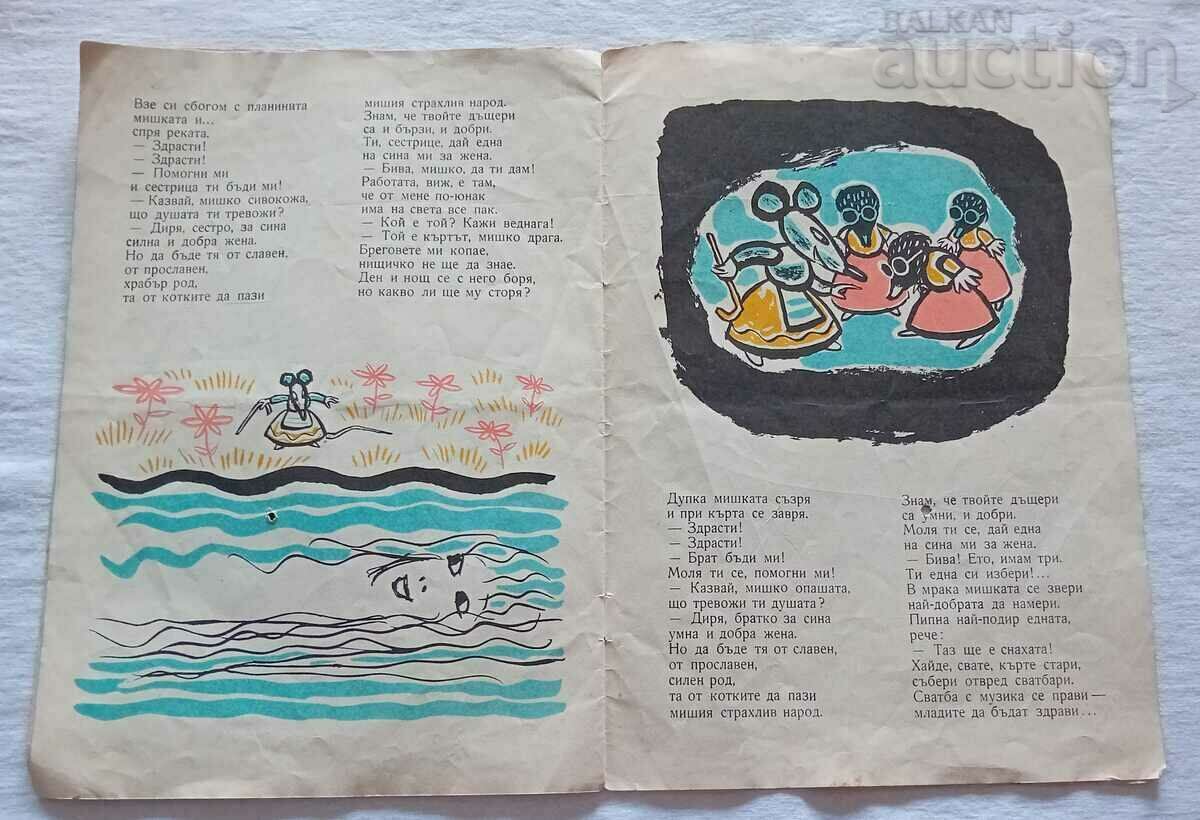 BALKAN
auction
Взе си сбогом с планинята
мишката и...
спря реката.
— Здрасти!
— Здрасти!
— Помогни ми
и сестрица ти бъди ми!
— Казвай, мишко сивокожа,
що душата ти тревожи?
— Диря, сестро, за сина
силна и добра жена.
Но да бъде тя от славен,
от прославен,
храбър род,
та от котките да пази
мишия страхлив народ.
Знам, че твойте дъщери
са и бързи, и добри.
Ти, сестрице, дай една
на сина ми за жена.
— Бива, мишко, да ти дам!
Работата, виж, е там,
че от мене по-юнак
има на света все пак.
— Кой е той? Кажи веднага!
— Той е къртът, мишко драга.
Бреговете ми копае,
нищичко не ще да знае.
Ден и нощ се с него боря,
но какво ли ще му сторя?
Дупка мишката съзря
и при кърта се завря.
— Здрасти!
— Здрасти!
— Брат бъди ми!
Моля ти се, помогни ми!
— Казвай, мишко опашата,
що тревожи ти душата?
— Диря, братко за сина
умна и добра жена.
Но да бъде тя от славен,
от прославен,
силен род,
та от котките да пази
мишия страхлив народ.
Знам, че твойте дъщери
са умни, и добри.
Моля ти се, дай една
на сина ми за жена.
— Бива! Ето, имам три.
Ти една си избери!...
В мрака мишката се звери
най-добрата да намери.
Пипна най-подир едната,
рече:
— Таз ще е снахата!
Хайде, свате, кърте стари,
събери отвред сватбари.
Сватба с музика се прави —
младите да бъдат здрави...